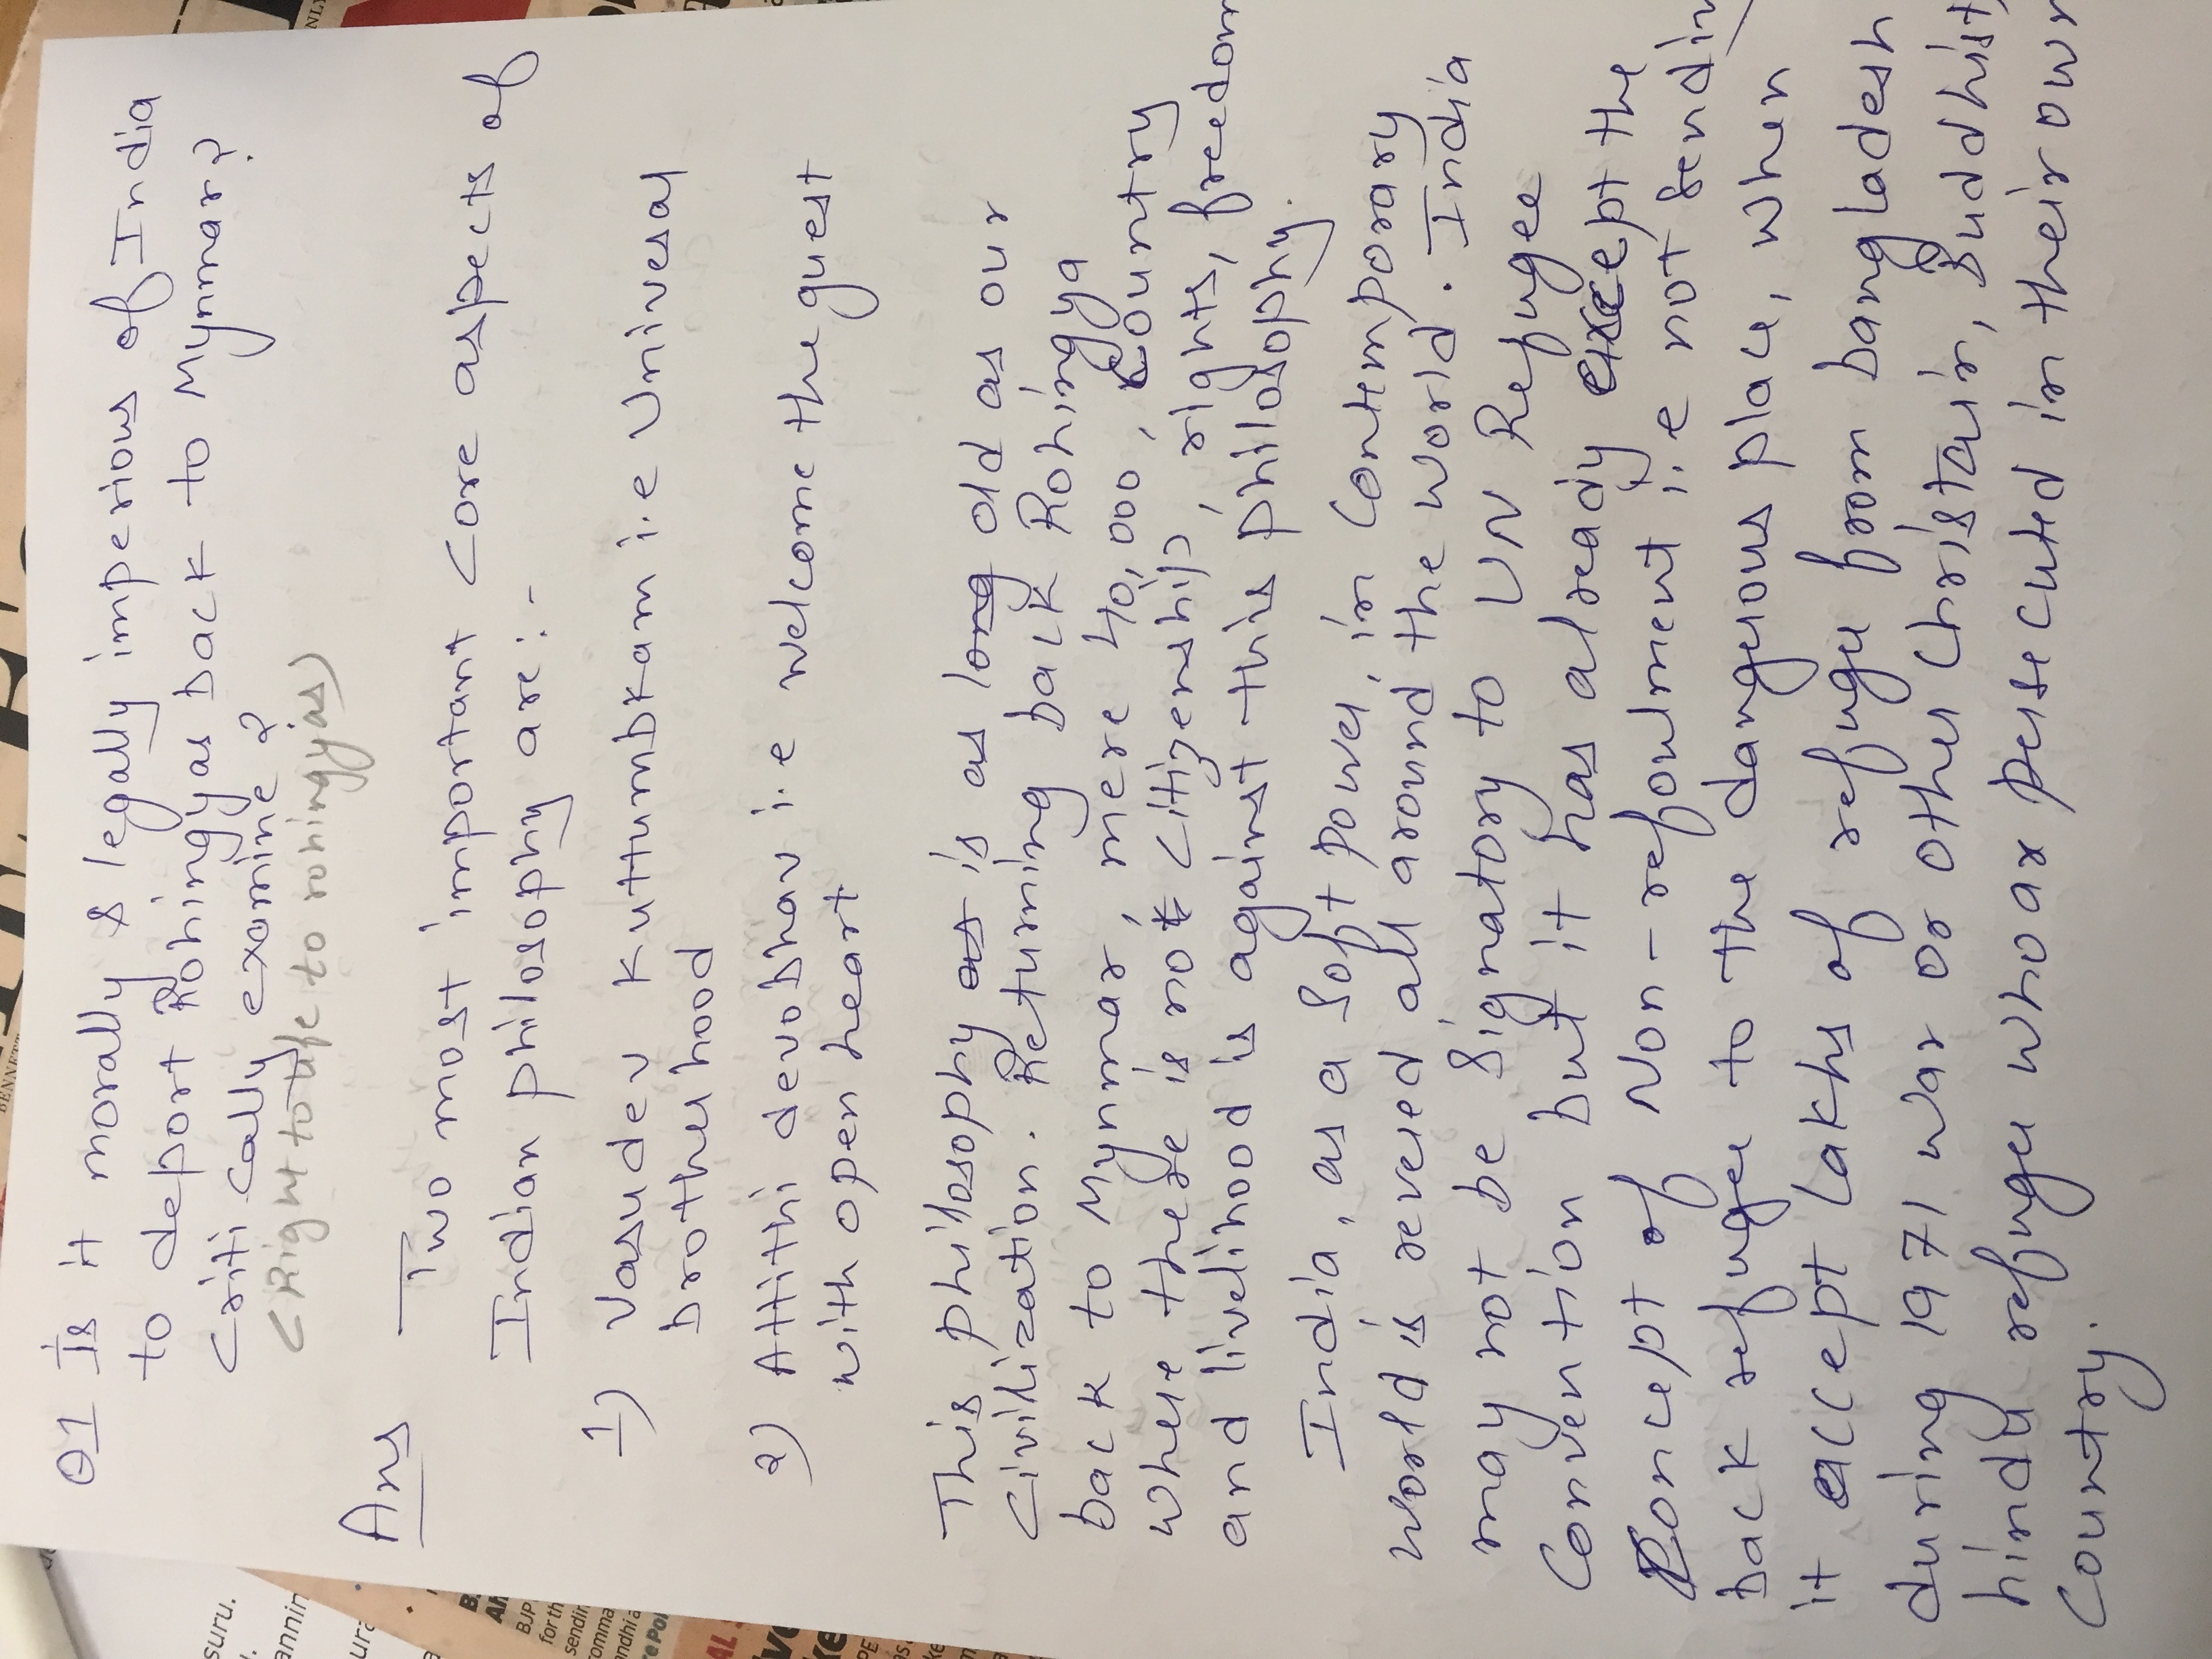 Q1 Is it morally & legally imperious of India
to deport Rohingyas back to Mynmar?
Critically examine?
(Right to life to rohingyias)
Ans Two most important core aspects of
Indian philosophy are:-
1) Vasudev Kuttumbkam i.e Univesal
brotherhood
2) Attithi devobhav i.e welcome the guest
with open heart
This philosophy as is as long old as our
Civilization. Returning back Rohingya
back to Mynmar, mere 40,000, country
where there is not citizenship, rights, freedom
and livelihood is against this philosophy.
India, as a Soft power, in Contemporary
world is revered all around the world. India
may not be Signatory to UN Refugee
Convention but it has already except the
Concept of Non-refoulment i.e not Sending
back refugee to the dangerous place, when
it accept lakhs of refugee from bangladesh
during 1971 war or other Christain, Buddhist,
hindu refugee who are persecuted in their own
Country.
BENNETT
NLY
suru.
annin
BJP
for th
sendin